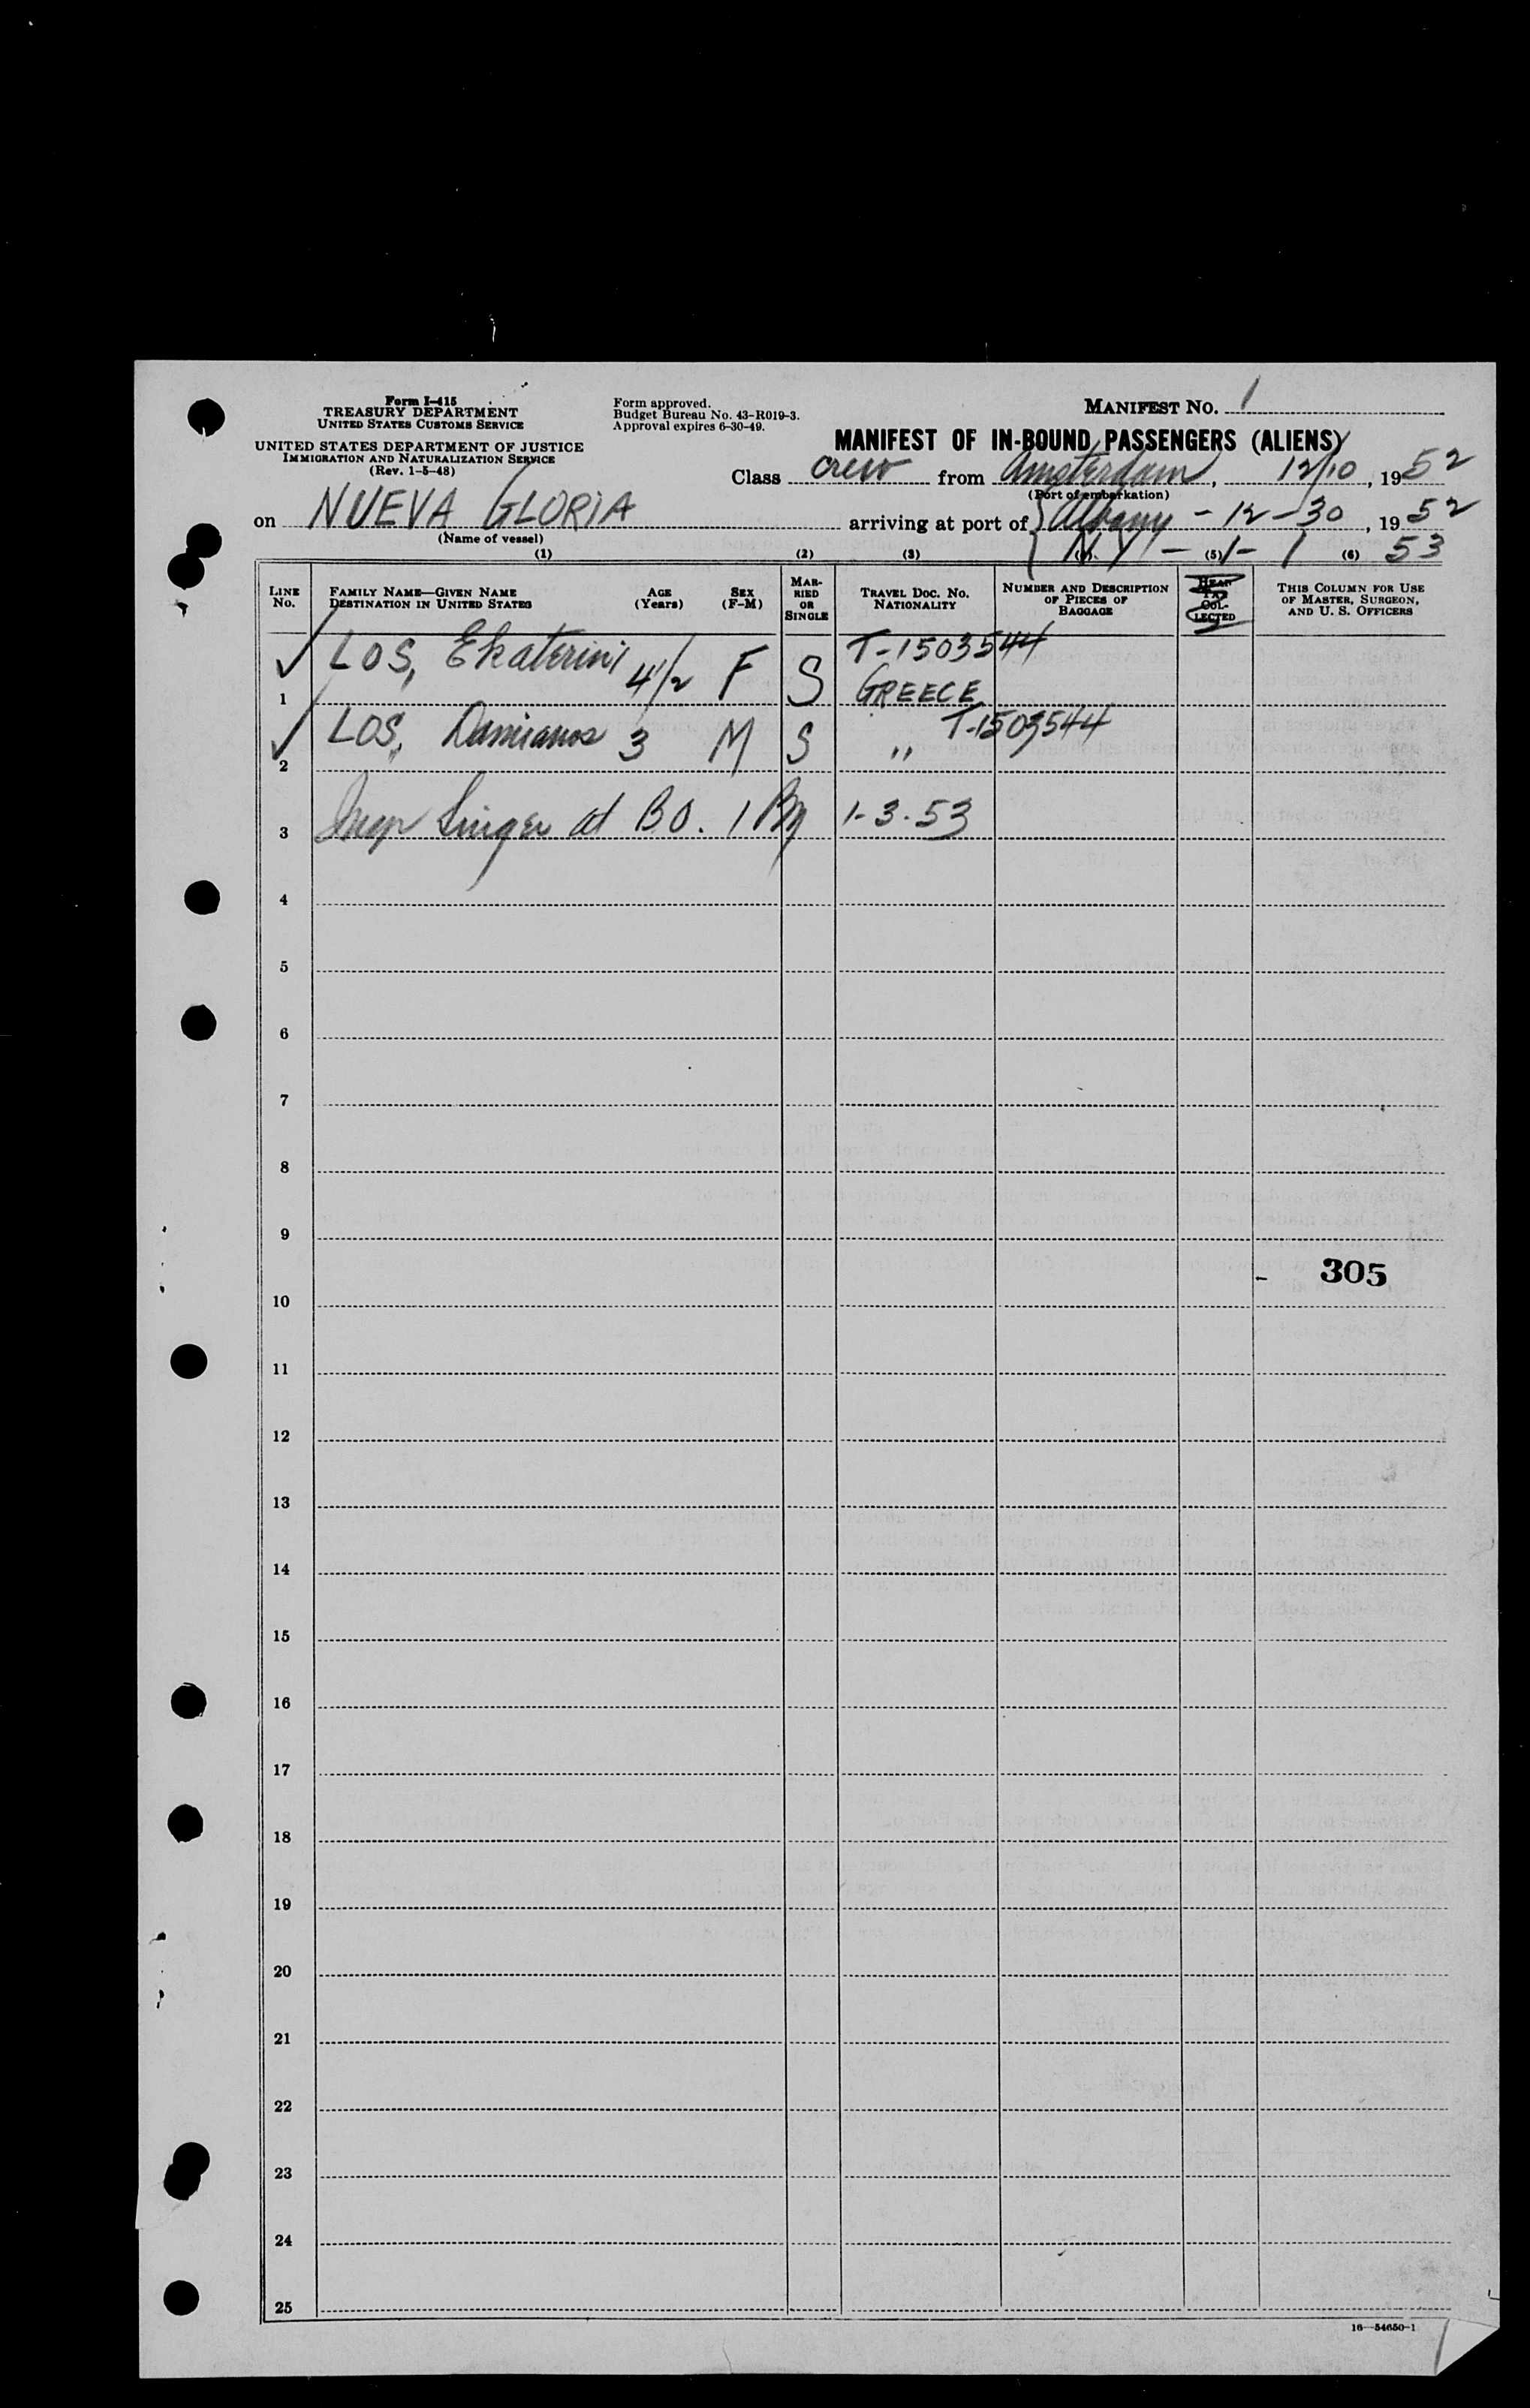 Form I-415
TREASURY DEPARTMENT
UNITED STATES CUSTOMS SERVICE
UNITED STATES DEPARTMENT OF JUSTICE
IMMIGRATION AND NATURALIZATION SERVICE
(Rev. 1-5-48)
Form approved.
Budget Bureau No. 43-R019-3.
Approval expires 6-30-49.
MANIFEST NO. 1
MANIFEST OF IN-BOUND PASSENGERS (ALIENS)
Class crew from Amsterdam, 12/10, 1952
(Port of embarkation)
on NUEVA GLORIA arriving at port of Albany - 12-30, 1952
(Name of vessel)
N.Y. - 1 - 1 53
(1) (2) (3) (4) (5) (6)
LINE NO.
FAMILY NAME—GIVEN NAME
DESTINATION IN UNITED STATES
AGE (Years)
SEX (F-M)
MARRIED OR SINGLE
TRAVEL DOC. NO.
NATIONALITY
NUMBER AND DESCRIPTION OF PIECES OF BAGGAGE
HEAD TAX COLLECTED
THIS COLUMN FOR USE OF MASTER, SURGEON, AND U. S. OFFICERS
1 LOS, Ekaterini 4 1/2 F S T-1503544
GREECE
2 LOS, Damianos 3 M S " T-1503544
3 Insp Singer at BO. 1-3-53
4
5
6
7
8
9
305
10
11
12
13
14
15
16
17
18
19
20
21
22
23
24
25
16—54650-1